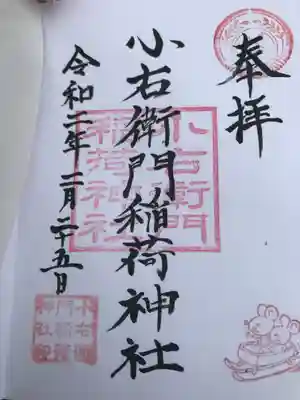 奉拝
小右衛門稲荷神社
令和二年二月二十五日
小右衛門
稲荷神社
小右衛
門稲荷